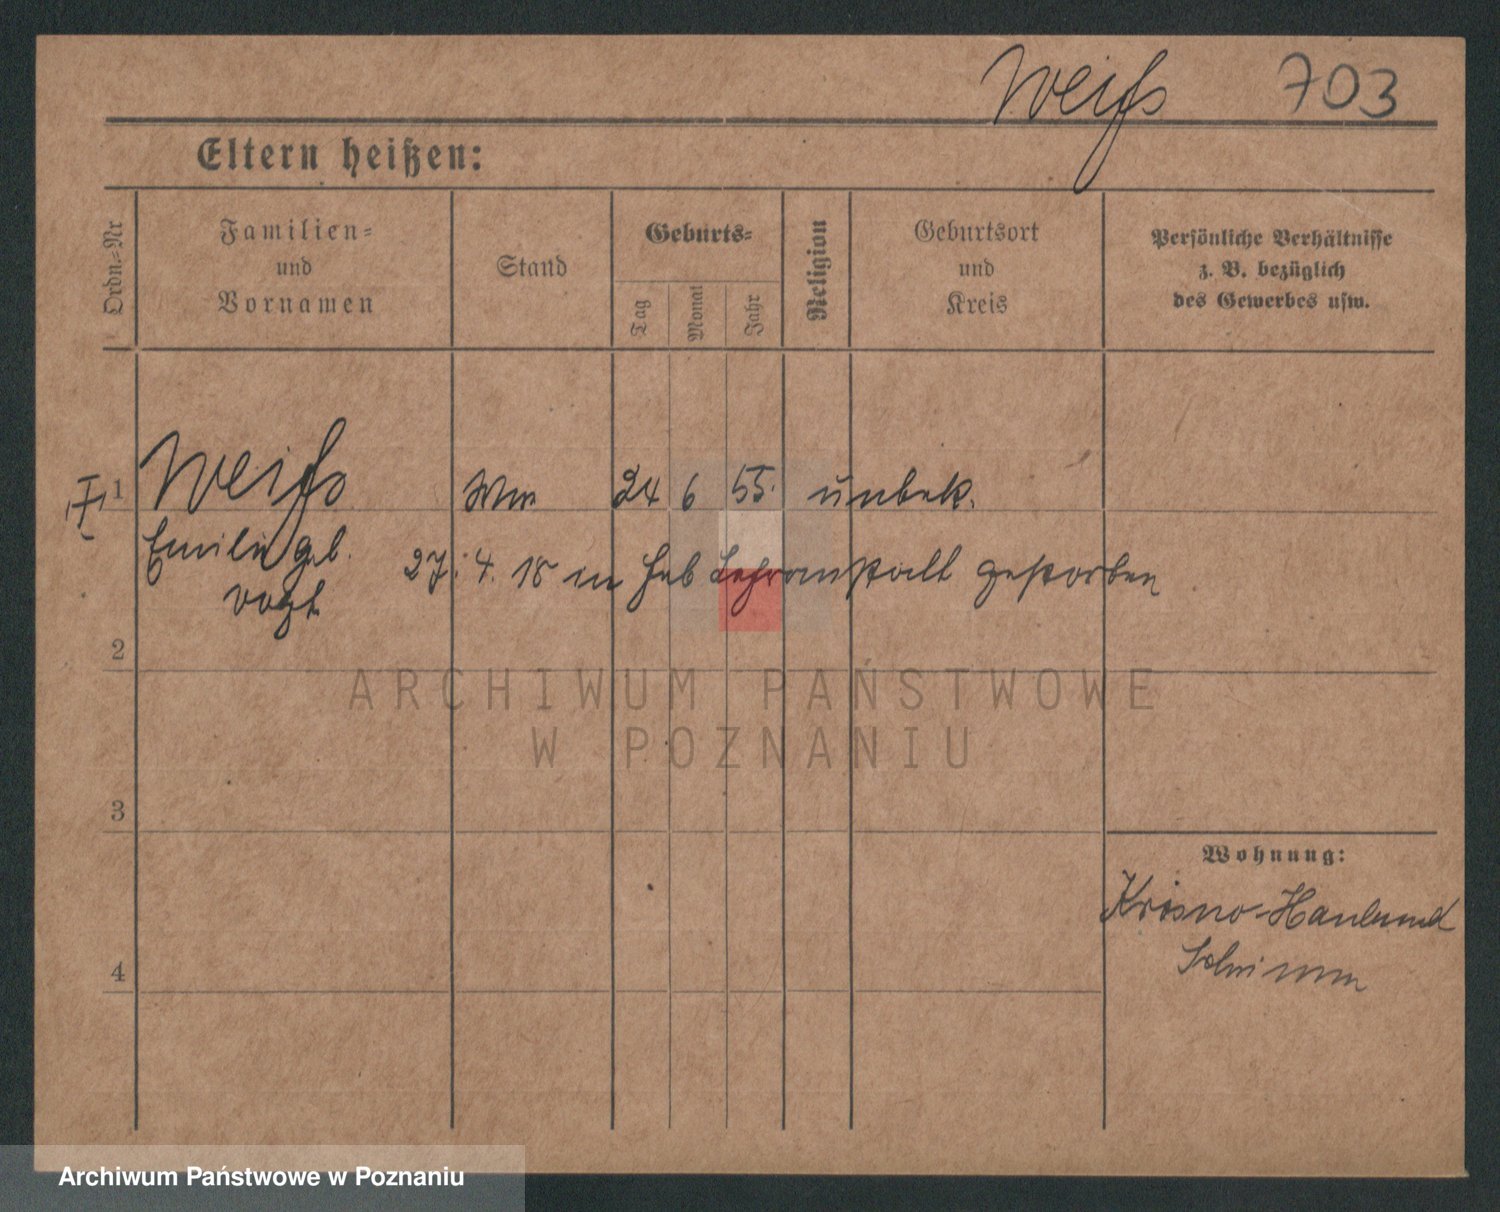 Weiß 703
Eltern heißen:
Ordn.-Nr
Familien-
und
Vornamen
Stand
Geburts-
Tag
Monat
Jahr
Religion
Geburtsort
und
Kreis
Persönliche Verhältnisse
z. B. bezüglich
des Gewerbes usw.
1 Weiß Ww 24 6 55. unbek.
Emilie geb.
Vogt
27. 4. 18 in Heb Lehranstalt gestorben
2
ARCHIWUM PAŃSTWOWE
W POZNANIU
3
Wohnung:
Krosno-Hauland
Schrimm
4
Archiwum Państwowe w Poznaniu